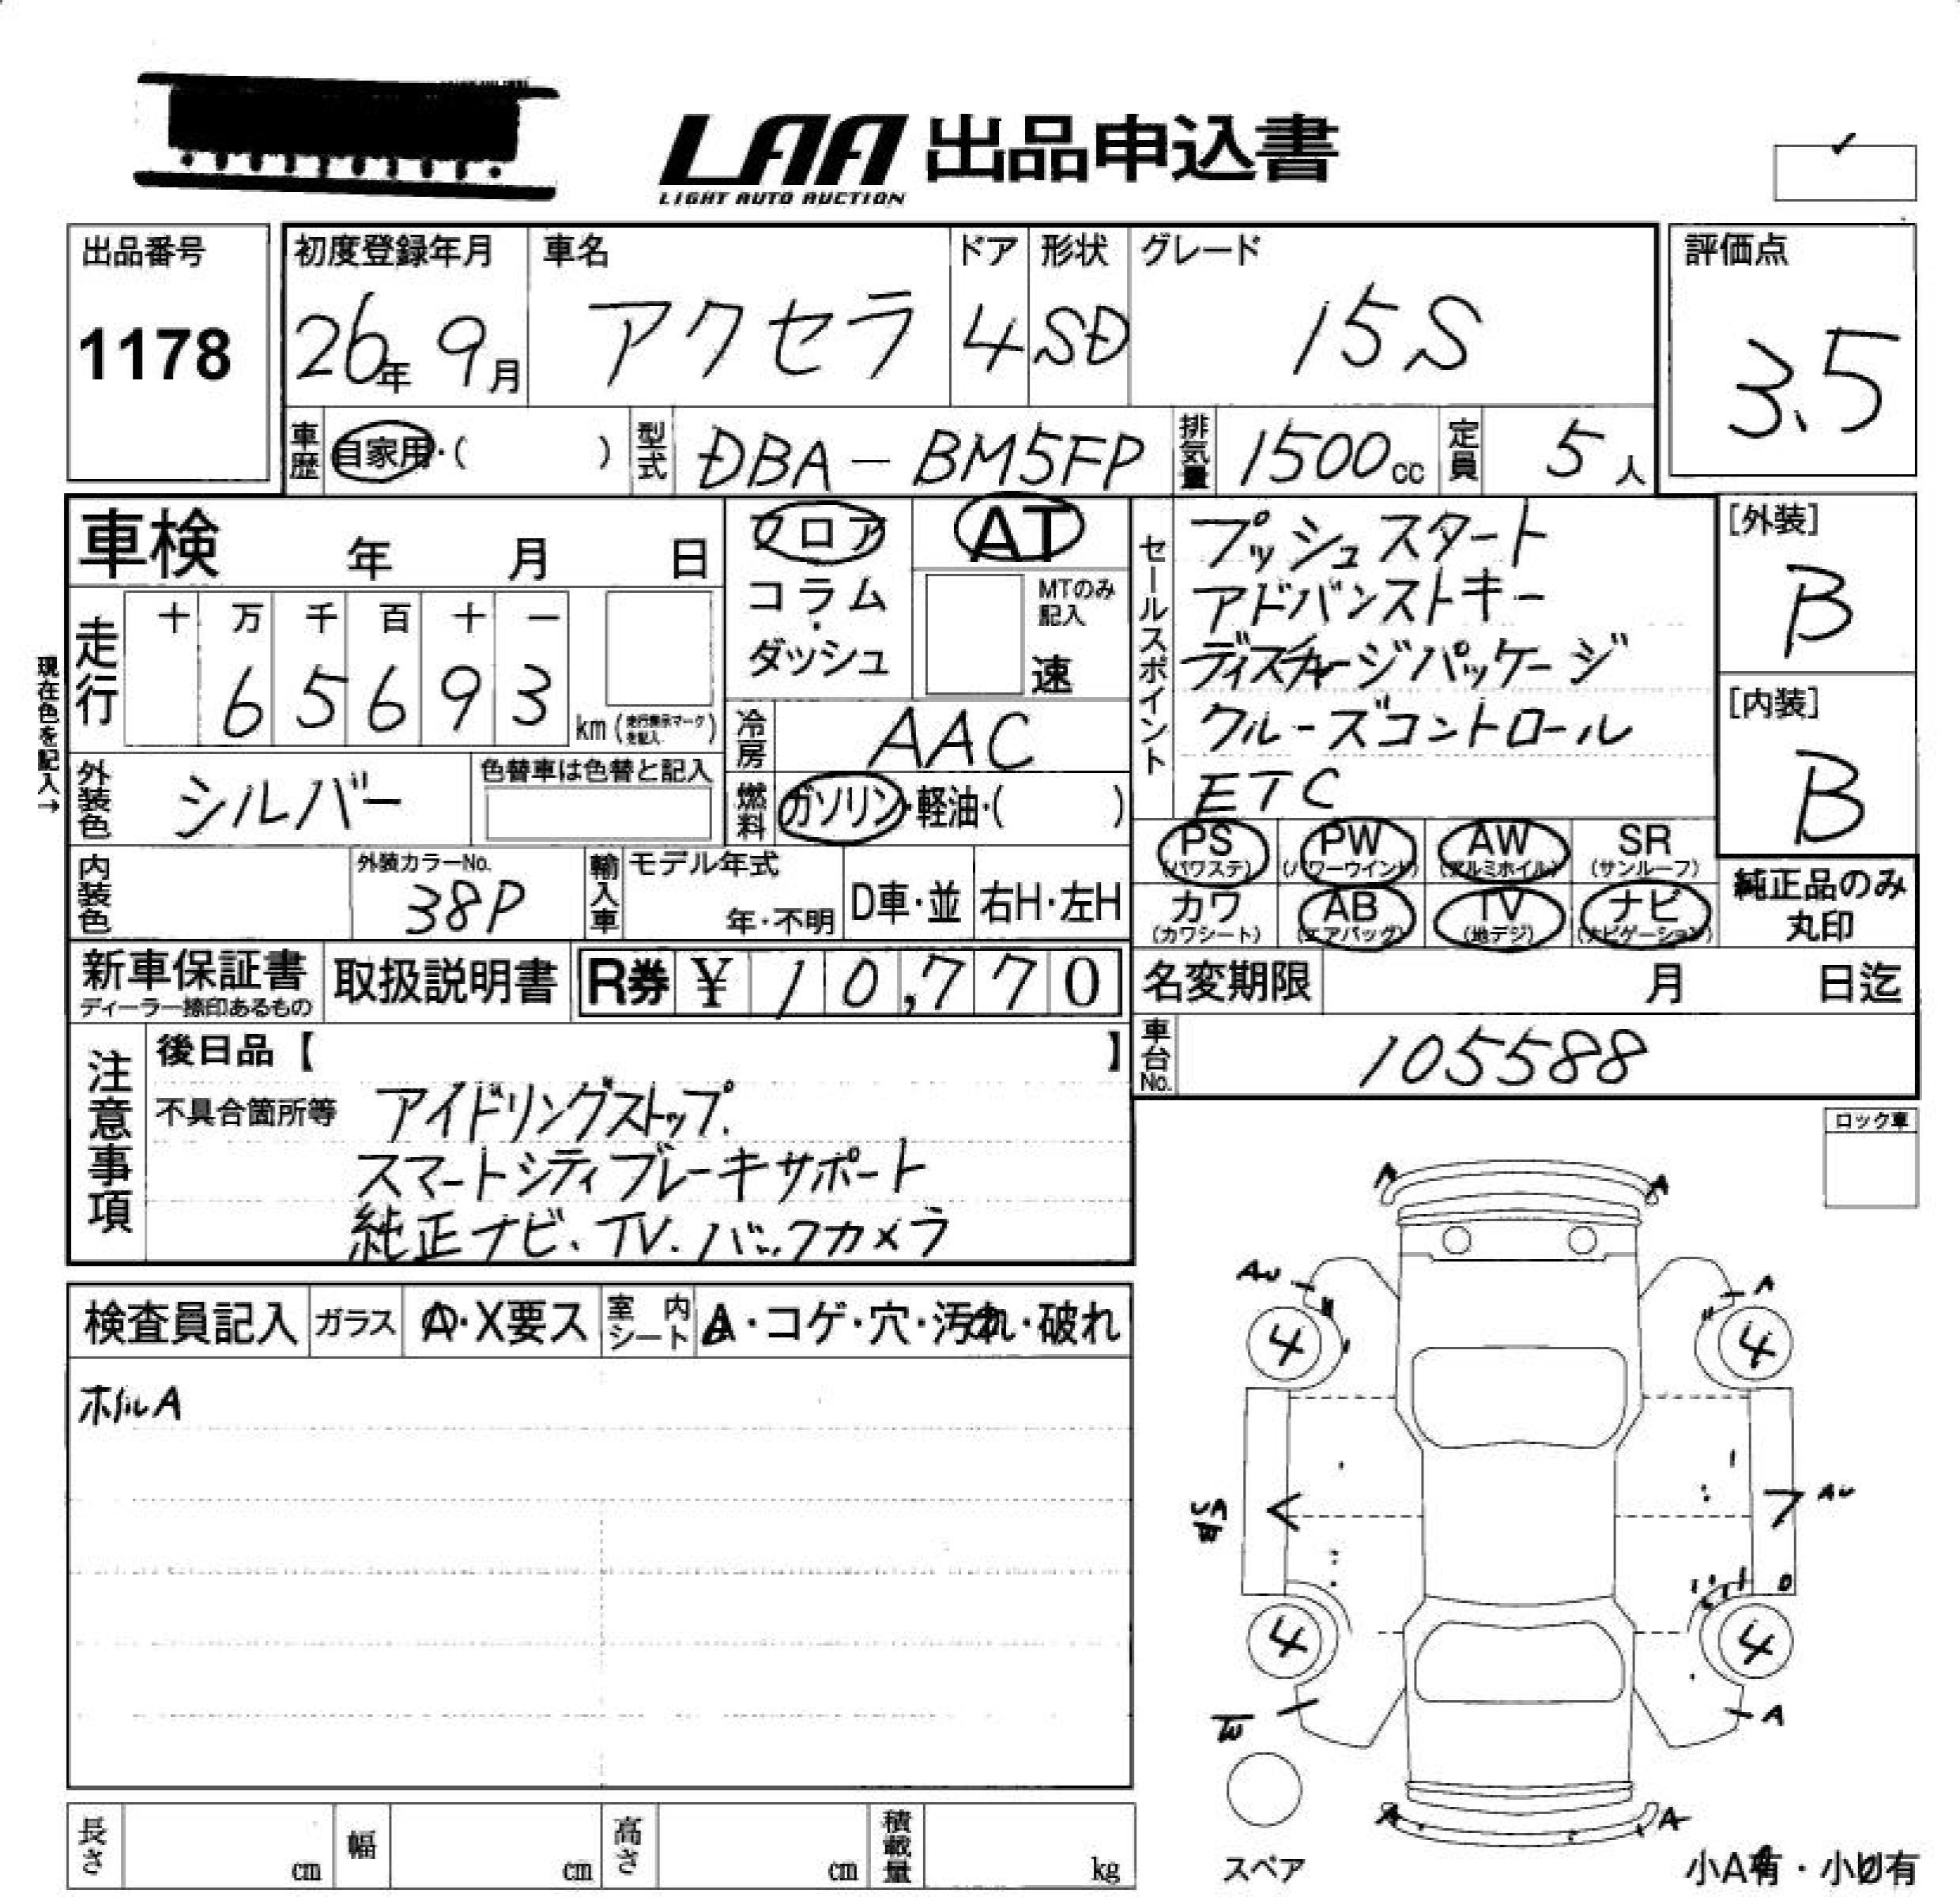 LAA 出品申込書
LIGHT AUTO AUCTION
出品番号
1178
初度登録年月
26年 9月
車名
アクセラ
ドア
4
形状
SD
グレード
15S
評価点
3.5
車歴 自家用・( )
型式 DBA-BM5FP
排気量 1500cc
定員 5人
車検 年 月 日
フロア
コラム
ダッシュ
AT
MTのみ記入
速
セールスポイント
プッシュスタート
アドバンストキー
ディスチャージパッケージ
クルーズコントロール
ETC
[外装]
B
[内装]
B
現在色を記入→
走行
十 万 千 百 十 一
6 5 6 9 3
km (走行表示マークを記入)
冷房 AAC
外装色 シルバー
色替車は色替と記入
燃料 ガソリン・軽油・( )
PS (パワステ) PW (パワーウインド) AW (アルミホイル) SR (サンルーフ)
カワ (カワシート) AB (エアバッグ) TV (地デジ) ナビ (ナビゲーション)
純正品のみ
丸印
内装色
外装カラーNo.
38P
輸入車
モデル年式
年・不明
D車・並
右H・左H
新車保証書
ディーラー捺印あるもの
取扱説明書
R券 ¥ 10,770
名変期限 月 日迄
車台No. 105588
注意事項
後日品【 】
不具合箇所等 アイドリングストップ.
スマートシティブレーキサポート
純正ナビ、TV、バックカメラ
ロック車
検査員記入 ガラス A・X要ス 室内シート A・コゲ・穴・汚れ・破れ
ホイルA
A A
AU A
4 4
UA
W
AU
4 4
W A
A A
スペア
小A有・小U有
長さ cm 幅 cm 高さ cm 積載量 kg